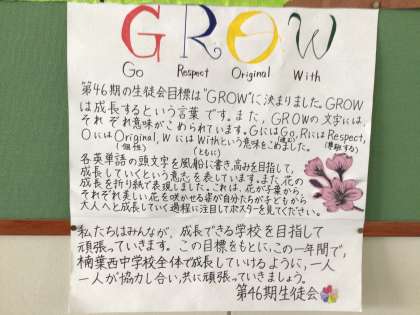 GROW
Go Respect Original With
第46期の生徒会目標は"GROW"に決まりました。GROW
は成長するという言葉です。また、GROWの文字には、
それぞれ意味がこめられています。GにはGo、RにはRespect、
(進む) (尊敬する)
OにはOriginal、WにはWithという意味をこめました。
(個性) (ともに)
各英単語の頭文字を風船に書き、高みを目指して、
成長していくという意志を表しています。また花の
成長を折り紙で表現しました。これは、花が子葉から、
それぞれ美しい花を咲かせる姿が自分たちが子どもから
大人へと成長していく過程に注目してポスターを見てください。
私たちはみんなが、成長できる学校を目指して
頑張っていきます。この目標をもとに、この一年間で、
楠葉西中学校全体で成長していけるように、一人
一人が協力し合い、共に頑張っていきましょう。
第46期生徒会